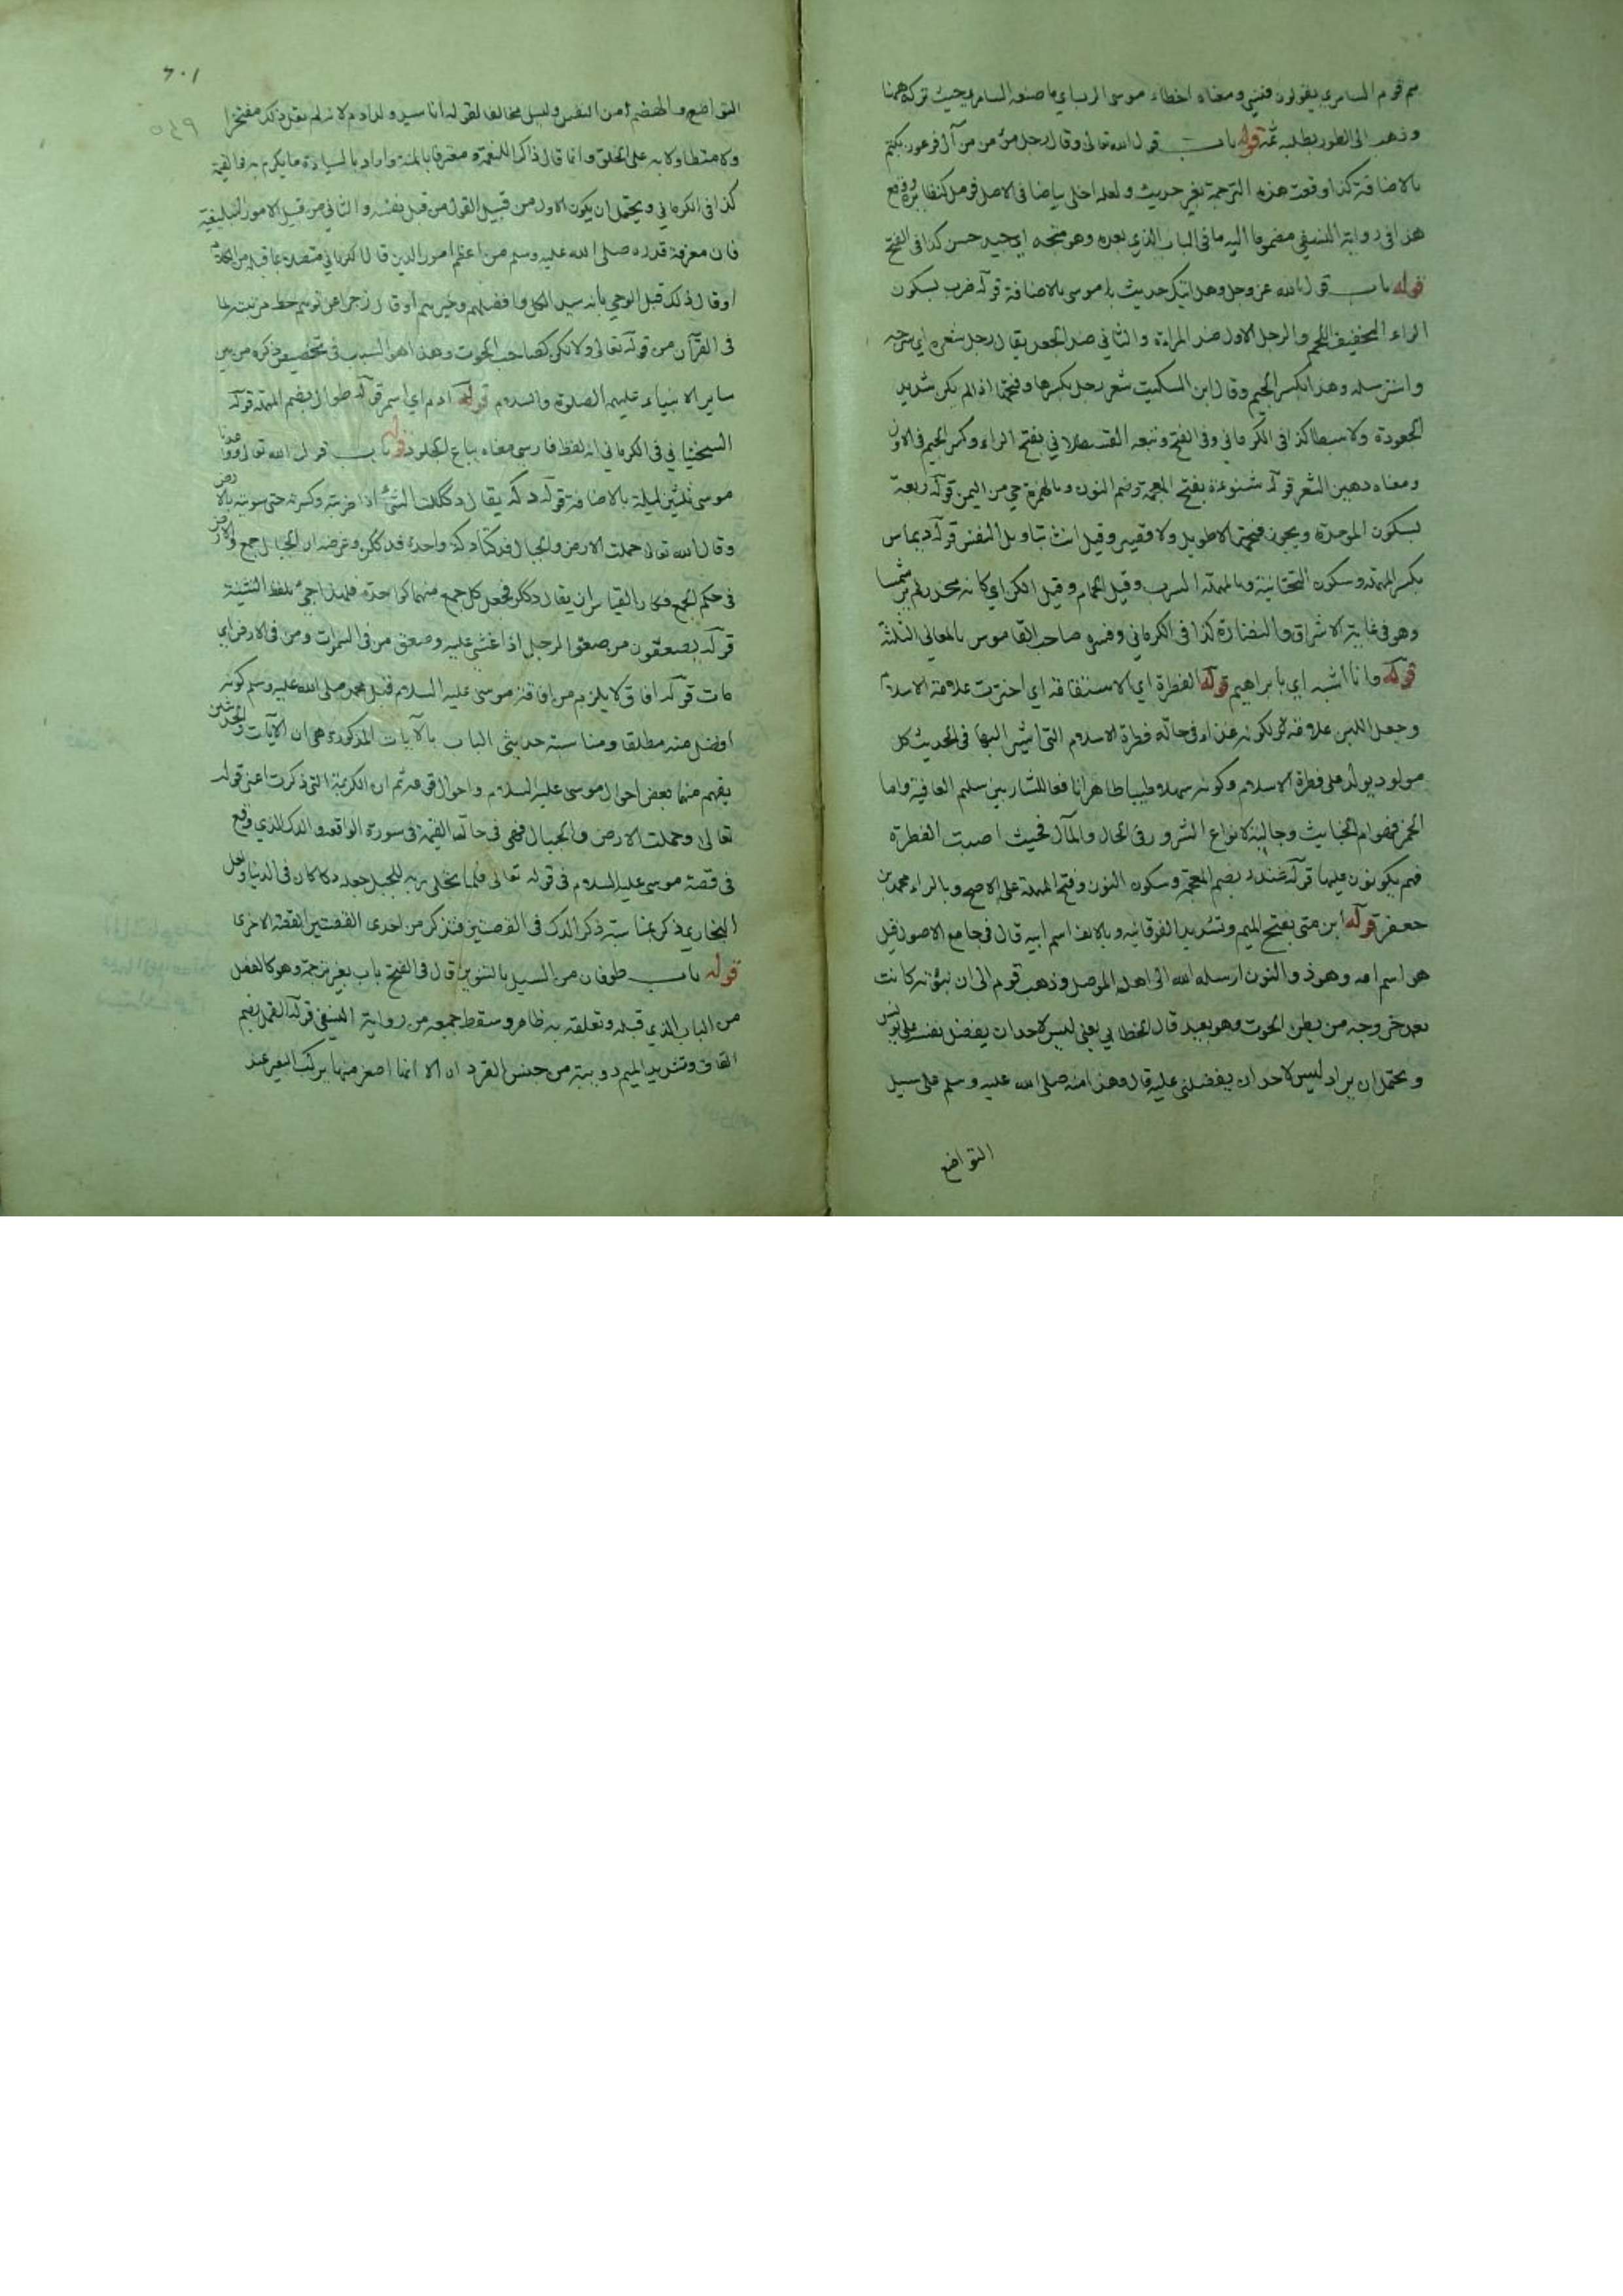 هم قوم السامري يقولون فنسي ومعناه اخطاء موسى الرب اي ما صنعه السامري حيث تركه ههنا
وذهب الى الطور يطلبه ثمة قوله باب قول الله تعالى وقال رجل مؤمن من آل فرعون يكتم
بالاضافة كذا وقعت هذه الترجمة بغير حديث ولعله اخلى بياضا في الاصل فوصل كنظائره ووقع
هذا في رواية النسفي مضموما اليه ما في الباب الذي بعده وهو متجه اي جيد حسن كذا في الفتح
قوله باب قول الله عز وجل وهل اتيك حديث موسى بالاضافة قوله ضرب بسكون
الراء الخفيف اللحم والرجل الاول ضد المراءة والثاني ضد الجعد يقال رجل شعره اي سرحه
واسترسله وهذا بكسر الجيم وقال ابن السكيت شعر رجل بكسرها وفتحها اذا لم يكن شديد
الجعودة ولا سبطا كذا في الكرماني وفي الفتح وتبعه القسطلاني بفتح الراء وكسر الجيم في الاول
ومعناه دهين الشعر قوله شنوءة بفتح المعجمة وضم النون وبالهمزة حي من اليمن قوله ربعة
بسكون الموحدة ويجوز فتحها لا طويل ولا قصير وقيل انث بتاويل النفس قوله ديماس
بكسر المهملة وسكون التحتانية وبالمهملة السرب وقيل الحمام وقيل الكن اي كانه مخدر لم ير شمسا
وهو في غاية الاشراق والنضارة كذا في الكرماني وفسره صاحب القاموس بالمعاني الثلثة
قوله وانا اشبه اي بابراهيم قوله الفطرة اي الاستقامة اي اخترت علامة الاسلام
وجعل اللبن علامة لكونه غذاء في حالة فطرة الاسلام التي اشير اليها في الحديث كل
مولود يولد على فطرة الاسلام وكونه سهلا طيبا طاهرا نافعا للشاربين سليم العافية واما
الخمر فهو ام الخبايث وجالبة لانواع الشرور في الحال والمآل فحيث اصبت الفطرة
فهم يكونون عليها قوله غندر بضم المعجمة وسكون النون وفتح المهملة على الاصح وبالراء محمد بن
جعفر قوله ابن متى بفتح الميم وتشديد الفوقانية وبالالف اسم ابيه قال في جامع الاصول قيل
هو اسم امه وهو ذو النون ارسله الله الى اهل الموصل وذهب قوم الى ان نبوته كانت
بعد خروجه من بطن الحوت وهو بعيد قال الخطابي يعني ليس لاحد ان يفضل نفسه على يونس
ويحتمل ان يراد ليس لاحد ان يفضلني عليه قال وهذا منه صلى الله عليه وسلم على سبيل
التواضع
٦٠١
التواضع والهضم من النفس وليس مخالفا لقوله انا سيد ولد ادم لانه لم يقل ذلك مفتخرا
ولا متطاولا به على الخلق وانما قال ذاكرا للنعمة ومعترفا بالمنة واراد بالسيادة ما يكرم به في القيمة
كذا في الكرماني ويحتمل ان يكون الاول من قبيل القول من قبل نفسه والثاني من قبيل الامور التبليغية
فان معرفة قدره صلى الله عليه وسلم من اعظم امور الدين قال الكرماني متصلا بما قبله من الكلام
او قال ذلك قبل الوحي بانه سيد الكل وافضلهم وخيرهم او قال زجرا عن توهم حط مرتبته لما
في القرآن من قوله تعالى ولا تكن كصاحب الحوت وهذا هو السبب في تخصيص ذكره من بين
ساير الانبياء عليهم الصلوة والسلام قوله ادم اي اسمر قوله طوال بضم المهملة قوله
السختياني في الكرماني انه لفظ فارسي معناه بياع الجلود قوله باب قول الله تعالى ووعدنا
موسى ثلثين ليلة بالاضافة قوله دكه يقال دككت الشئ اذا ضربته وكسرته حتى سويته بالارض
وقال الله تعالى حملت الارض والجبال فدكتا دكة واحدة فدككن وغرضه ان الجبال جمع والارض
في حكم الجمع وكان القياس ان يقال دككن فجعل كل جمع منهما كواحدة فلهذا جئ بلفظ التثنية
قوله يصعقون من صعق الرجل اذا غشي عليه وصعق من في السموات ومن في الارض اي
مات قوله افاق لا يلزم من افاقة موسى عليه السلام قبل محمد صلى الله عليه وسلم كونه
افضل منه مطلقا ومناسبة حديثي الباب بالآيات المذكورة هي ان الآيات والحديثين
يفهم منها بعض احوال موسى عليه السلام واحوال قومه ثم ان الكريمة التي ذكرت اعني قوله
تعالى وحملت الارض والجبال فهي في حالة القيمة في سورة الواقعة والدك الذي وقع
في قصة موسى عليه السلام في قوله تعالى فلما تجلى ربه للجبل جعله دكا كان في الدنيا ولعل
البخاري ذكر بمناسبة ذكر الدك في القصتين فتذكر من احدى القصتين القصة الاخرى
قوله باب طوفان من السيل بالتنوين قال في الفتح باب بغير ترجمة وهو كالفصل
من الباب الذي قبله وتعلقه به ظاهر وسقط جميعه من رواية النسفي قوله القمل بضم
القاف وتشديد الميم دويبة من جنس القرد ان الا انها اصغر منها يركب البعير عند